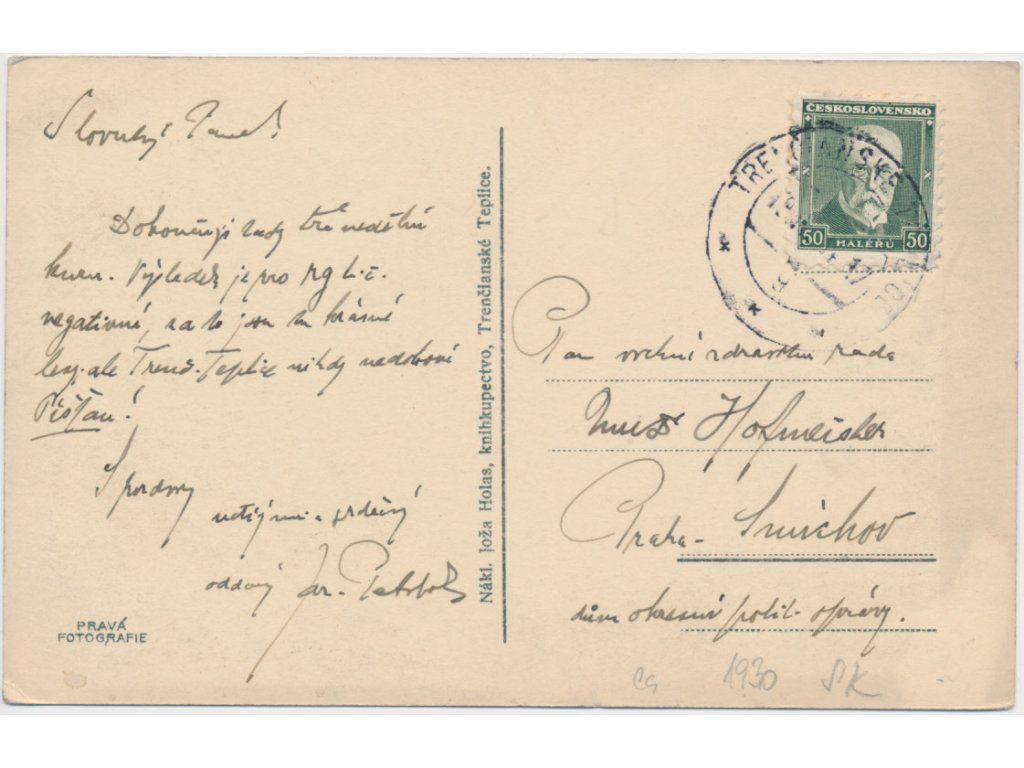 Slovutný Pane!
Dokončuji tady tří nedělní
kuru. Výsledek je pro mg
negativní, za to jsou tu krásné
lesy. ale Trenč. Teplice nikdy nedohoní
Píšťan!
S pozdravy
uctivými a srdečný
oddaný Jar.
PRAVÁ
FOTOGRAFIE
Nákl. Joža Holas, knihkupectvo, Trenčianské Teplice.
ČESKOSLOVENSKO
50 HALÉŘŮ 50
TRENČIANSKE
Pan vrchní zdravotní rada
MUDr Hofmeister
Praha - Smíchov
dům okresní polit. správy.
ca 1930 SK